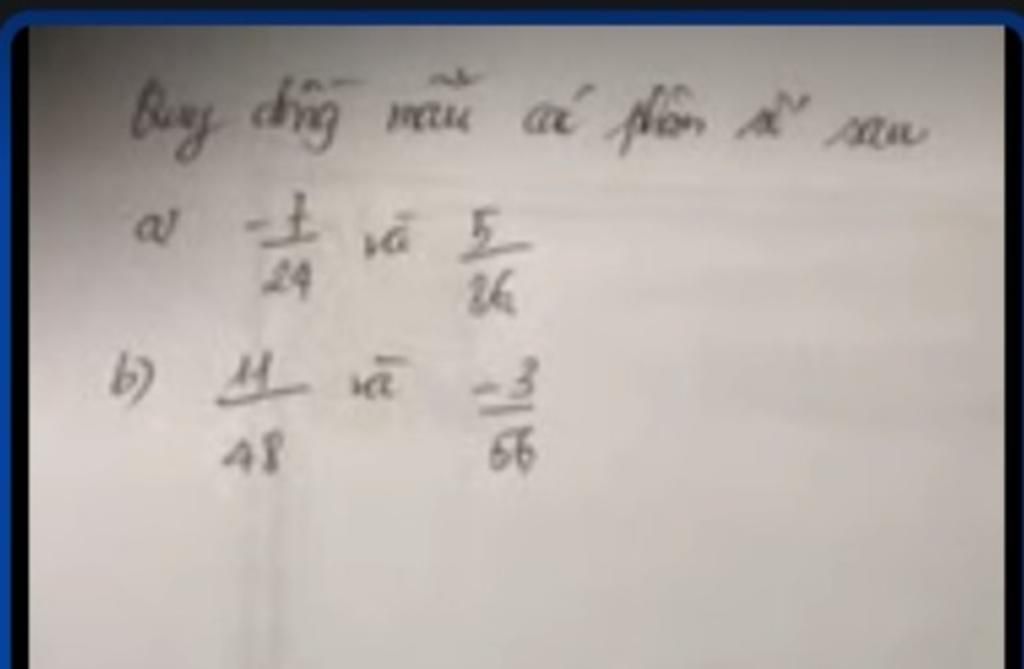 Quy đồng mẫu các phân số sau
a) -7/24 và 5/36
b) 11/48 và -3/56